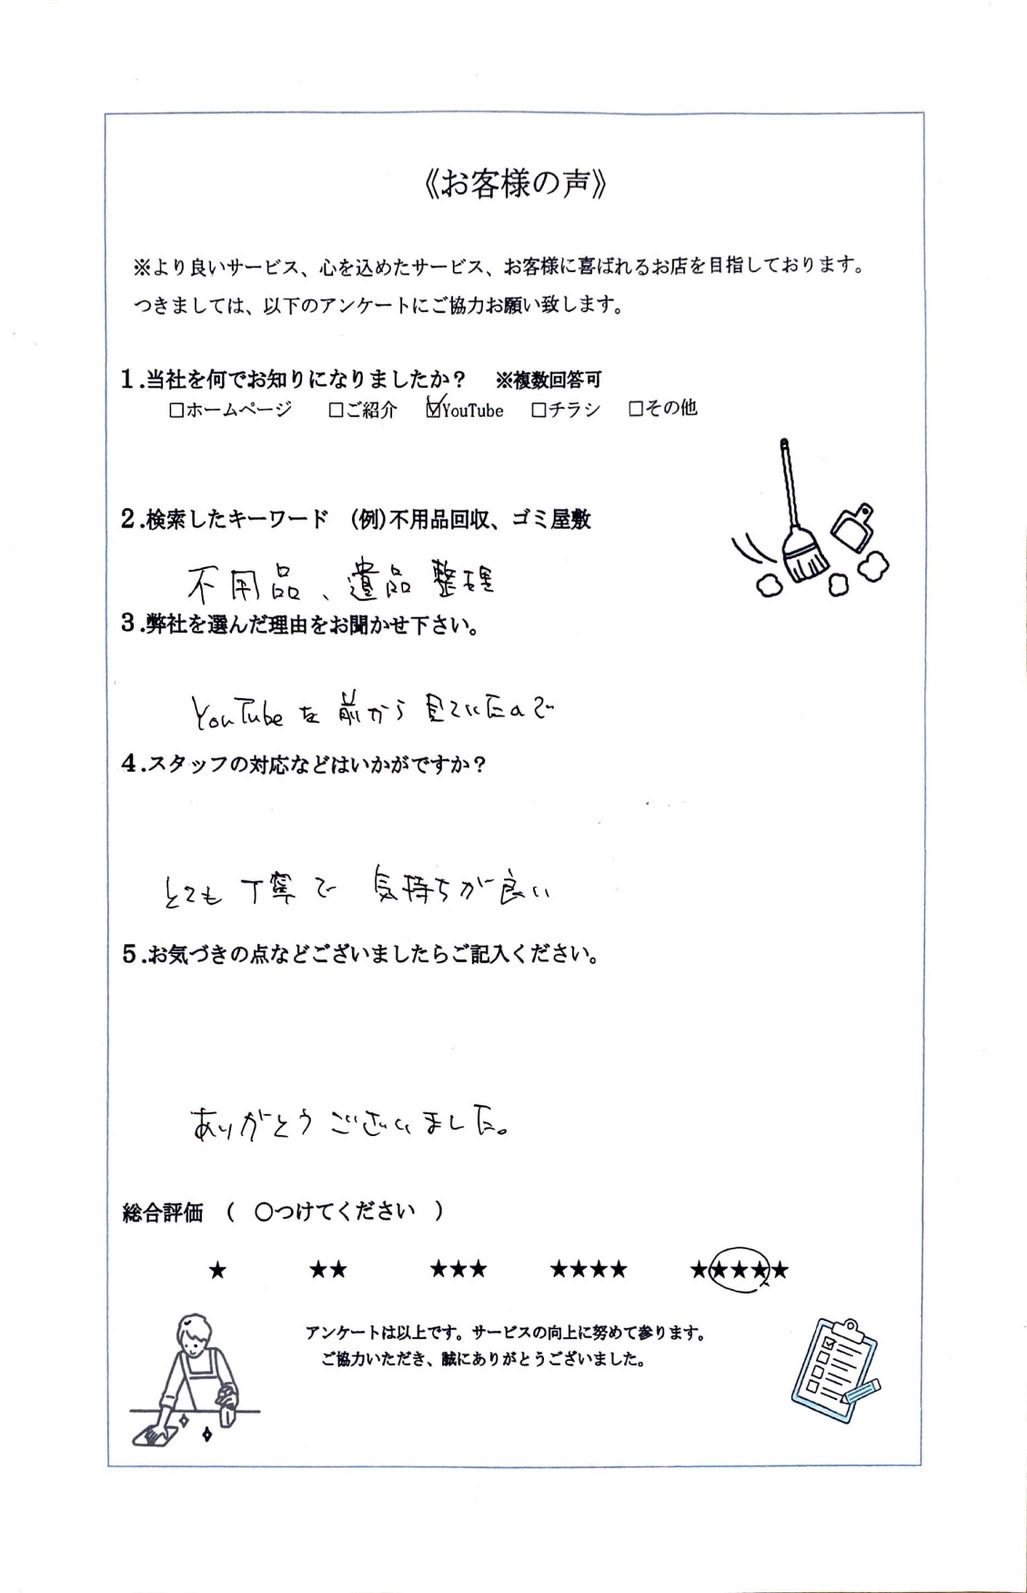 《お客様の声》
※より良いサービス、心を込めたサービス、お客様に喜ばれるお店を目指しております。
つきましては、以下のアンケートにご協力お願い致します。
1.当社を何でお知りになりましたか？　※複数回答可
□ホームページ　□ご紹介　☑YouTube　□チラシ　□その他
2.検索したキーワード　(例)不用品回収、ゴミ屋敷
不用品、遺品整理
3.弊社を選んだ理由をお聞かせ下さい。
YouTubeを前から見ていたので
4.スタッフの対応などはいかがですか？
とても丁寧で 気持ちが良い
5.お気づきの点などございましたらご記入ください。
ありがとうございました。
総合評価　(　〇つけてください　)
★　★★　★★★　★★★★　★★★★★
アンケートは以上です。サービスの向上に努めて参ります。
ご協力いただき、誠にありがとうございました。